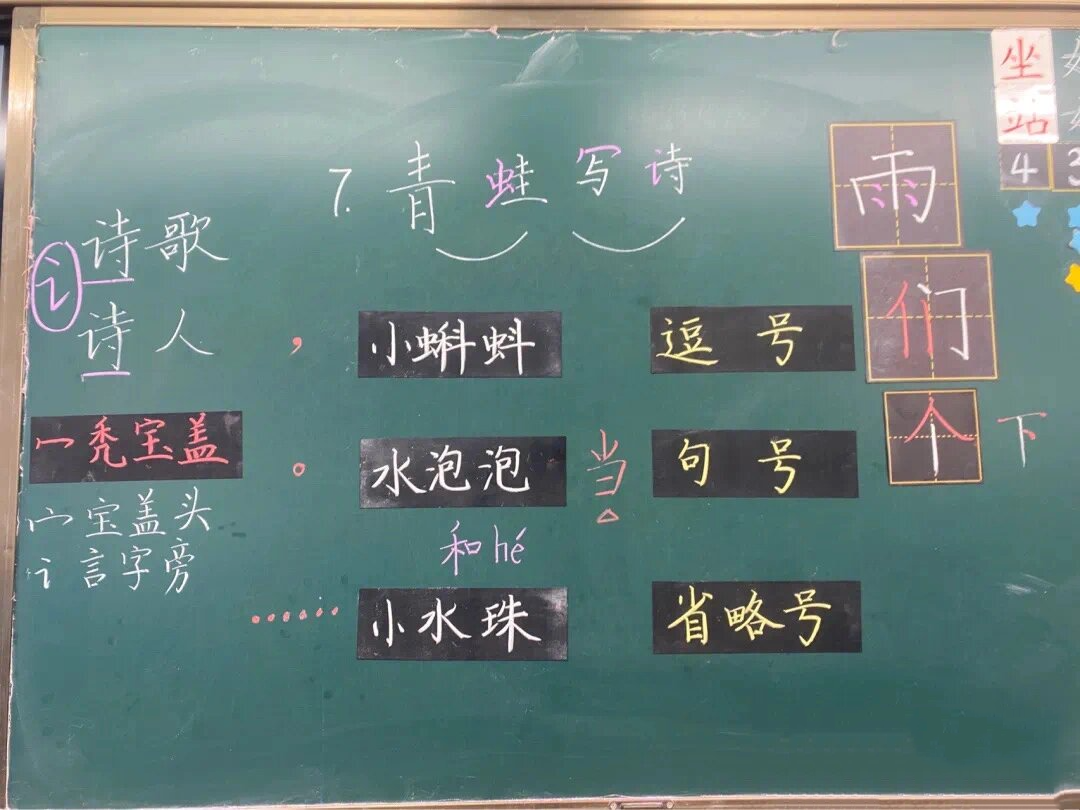 7. 青蛙写诗
讠 诗歌
诗人
冖秃宝盖
宀宝盖头
讠言字旁
， 小蝌蚪 逗号
。 水泡泡 当 句号
和hé
…… 小水珠 省略号
雨
们
个 下
坐
站
4 3